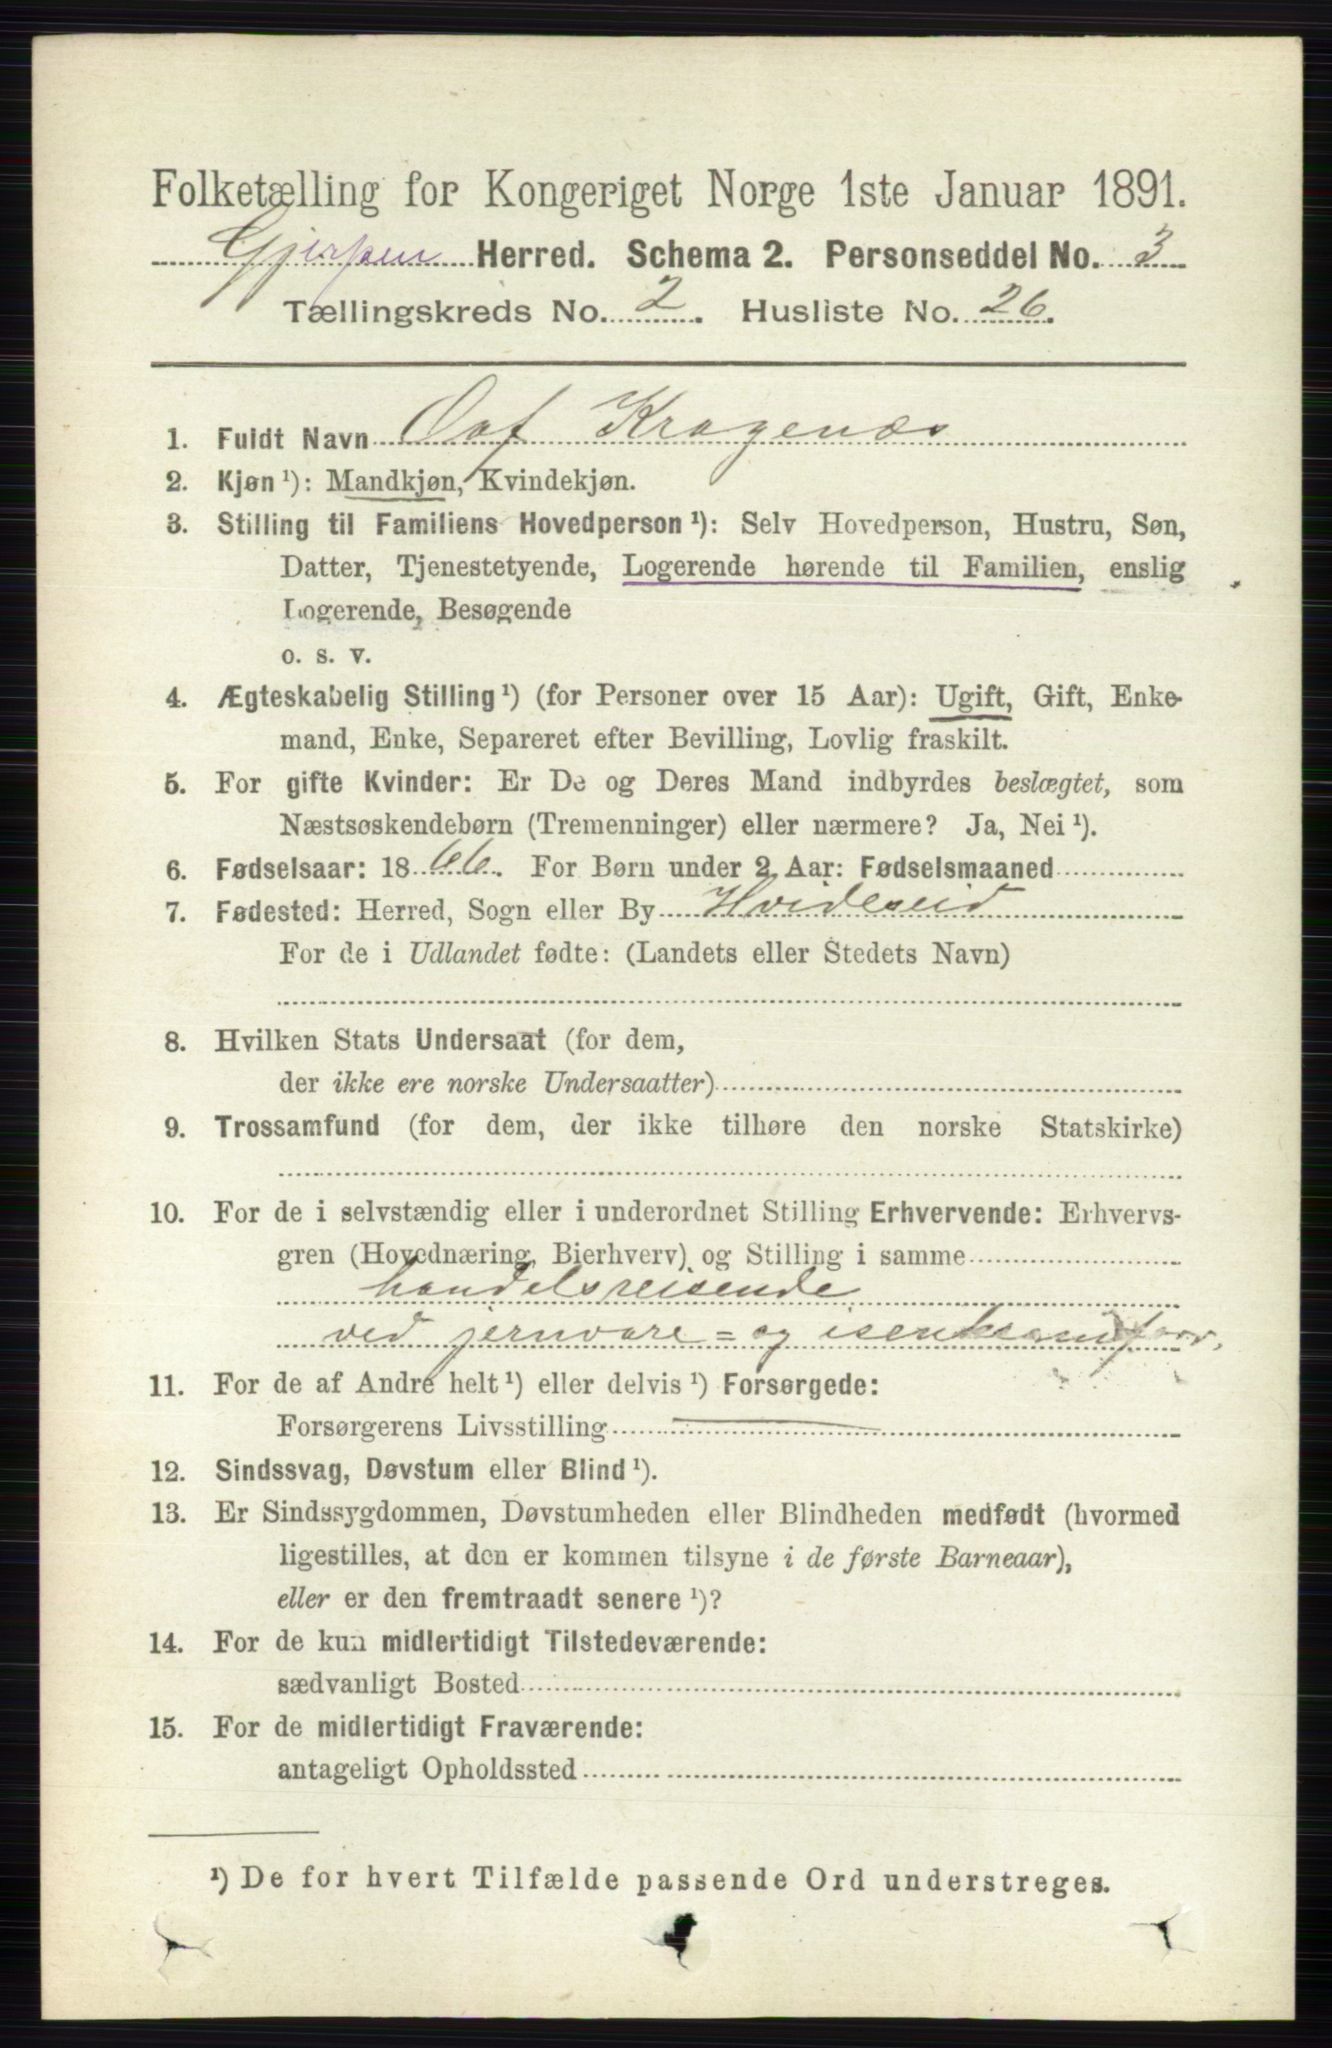 Folketælling for Kongeriget Norge 1ste Januar 1891.
Gjerpen Herred. Schema 2. Personseddel No. 3
Tællingskreds No. 2. Husliste No. 26.
1. Fuldt Navn Oaf Kragenæs
2. Kjøn ¹): Mandkjøn, Kvindekjøn.
3. Stilling til Familiens Hovedperson ¹): Selv Hovedperson, Hustru, Søn,
Datter, Tjenestetyende, Logerende hørende til Familien, enslig
Logerende, Besøgende
o. s. v.
4. Ægteskabelig Stilling ¹) (for Personer over 15 Aar): Ugift, Gift, Enke-
mand, Enke, Separeret efter Bevilling, Lovlig fraskilt.
5. For gifte Kvinder: Er De og Deres Mand indbyrdes beslægtet, som
Næstsøskendebørn (Tremenninger) eller nærmere? Ja, Nei ¹).
6. Fødselsaar: 1866. For Børn under 2 Aar: Fødselsmaaned
7. Fødested: Herred, Sogn eller By Hvideseid
For de i Udlandet fødte: (Landets eller Stedets Navn)
8. Hvilken Stats Undersaat (for dem,
der ikke ere norske Undersaatter)
9. Trossamfund (for dem, der ikke tilhøre den norske Statskirke)
10. For de i selvstændig eller i underordnet Stilling Erhvervende: Erhvervs-
gren (Hovednæring, Bierhverv) og Stilling i samme
handelsreisende
ved jernvare= og isenkram
11. For de af Andre helt ¹) eller delvis ¹) Forsørgede:
Forsørgerens Livsstilling
12. Sindssvag, Døvstum eller Blind ¹).
13. Er Sindssygdommen, Døvstumheden eller Blindheden medfødt (hvormed
ligestilles, at den er kommen tilsyne i de første Barneaar),
eller er den fremtraadt senere ¹)?
14. For de kun midlertidigt Tilstedeværende:
sædvanligt Bosted
15. For de midlertidigt Fraværende:
antageligt Opholdssted
¹) De for hvert Tilfælde passende Ord understreges.